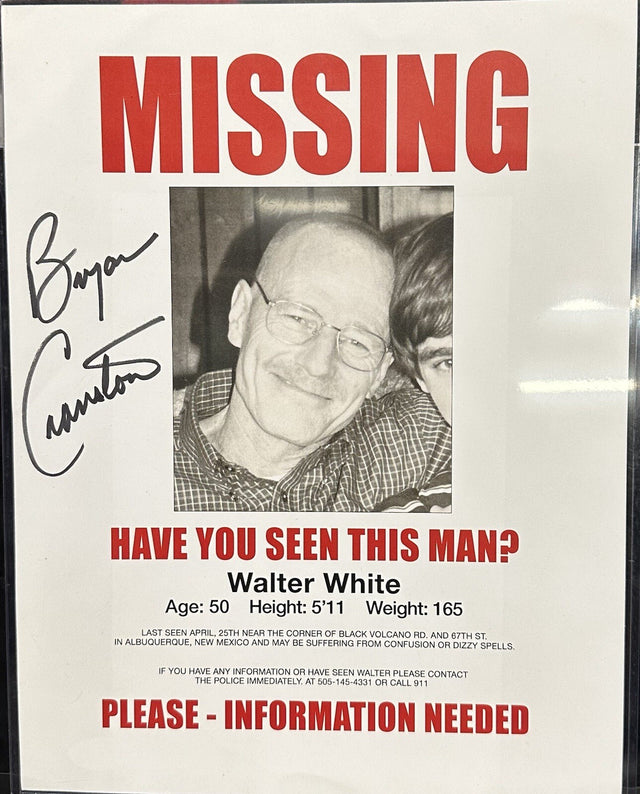 MISSING
Bryan
Cranston
HAVE YOU SEEN THIS MAN?
Walter White
Age: 50 Height: 5'11 Weight: 165
LAST SEEN APRIL, 25TH NEAR THE CORNER OF BLACK VOLCANO RD. AND 67TH ST.
IN ALBUQUERQUE, NEW MEXICO AND MAY BE SUFFERING FROM CONFUSION OR DIZZY SPELLS.
IF YOU HAVE ANY INFORMATION OR HAVE SEEN WALTER PLEASE CONTACT
THE POLICE IMMEDIATELY. AT 505-145-4331 OR CALL 911
PLEASE - INFORMATION NEEDED